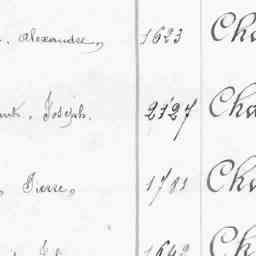 Alexandre, 1623 Cha
Joseph. 2127 Cha
Pierre, 1781 Cha
1642 Ch